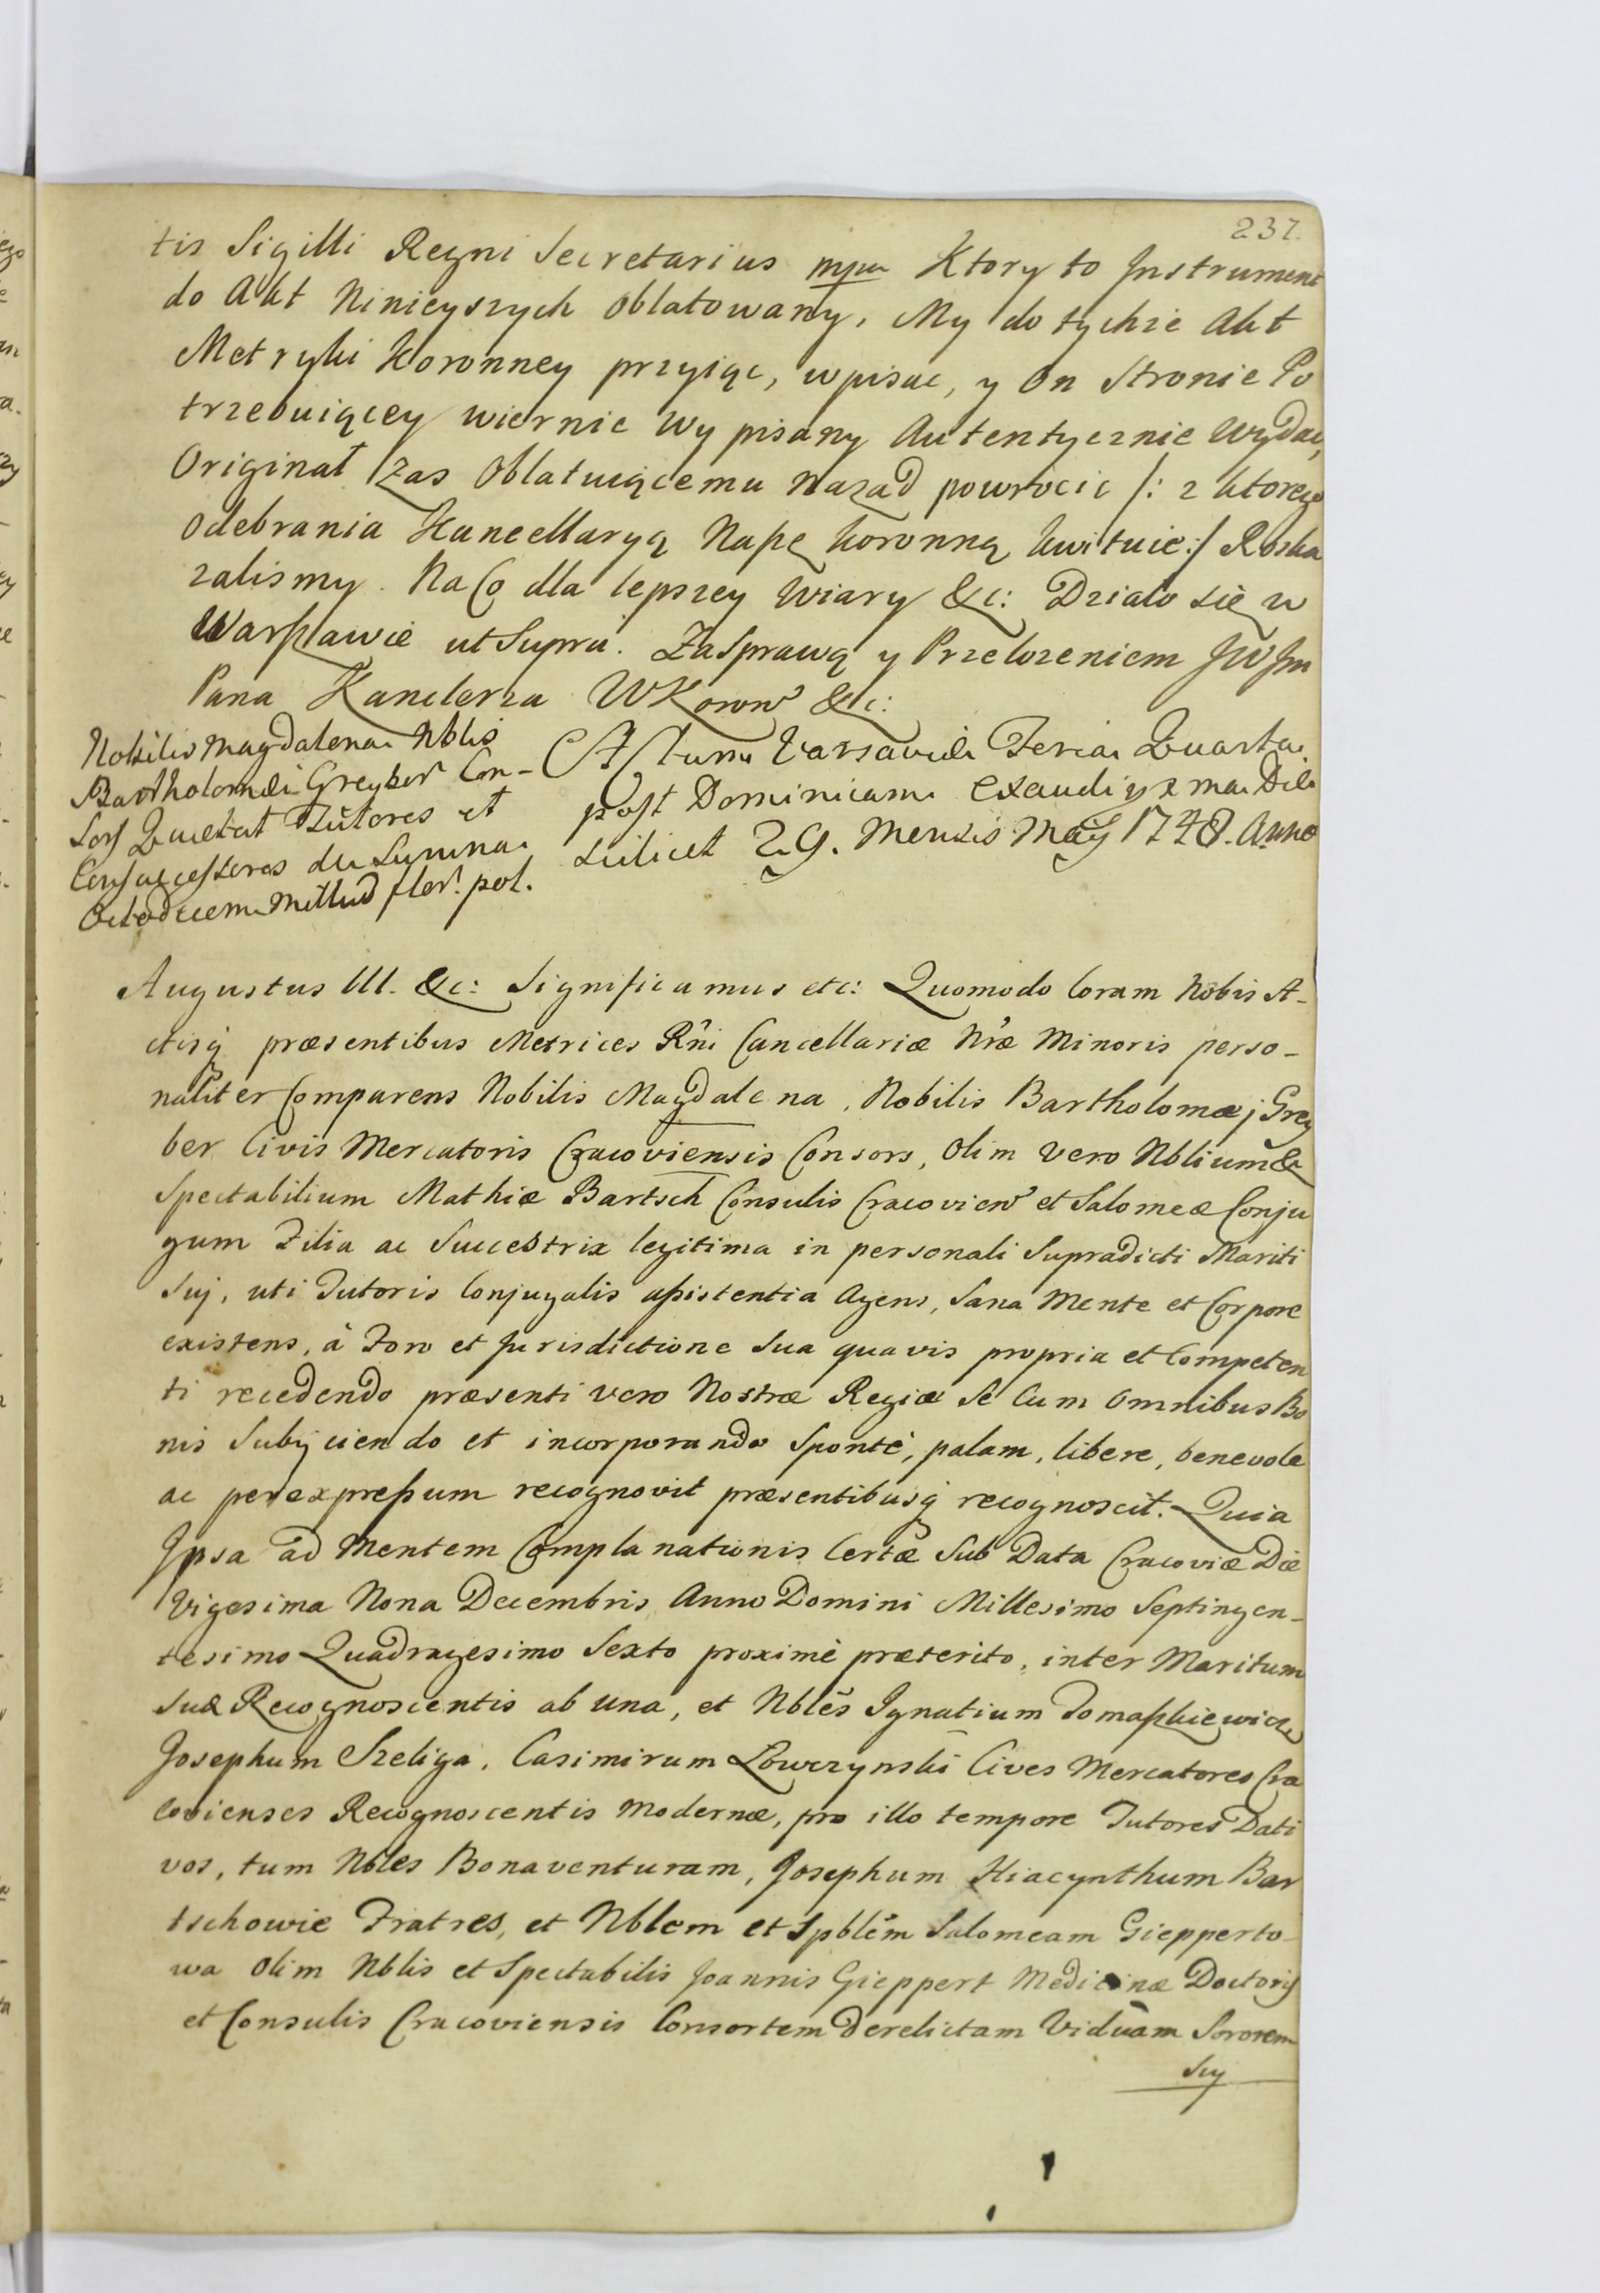 237.
tis Sigilli Regni Secretarius mpa Ktory to Instrument
do Akt Ninieyszych oblatowany, My do tychze Akt
Metryki Koronney przyiąc, wpisac, y On Stronie Po
trzebuiącey wiernie wypisany Autentycznie wydac,
Originał zas Oblatuiącemu nazad powrocic /: z ktorego
Odebrania Kancellaryą Naszę koronną kwituie :/ Roska
zalismy. Na Co dla lepszey wiary &c: Działo się w
Warszawie ut Supra. Za Sprawą y Przełozeniem JW Jm
Pana Kanclerza WKoron &c:
Nobilis Magdalena Nblis
Bartholomæi Greyber Con-
sors Quietat Tutores et
Consuccessores de Summa
Octodecem Millium flor. pol.
Actum Varsaviæ Feria Quarta
post Dominicam Exaudi proxima Die
scilicet 29. Mensis Maij 1748. Anno
Augustus III. &c: Significamus etc: Quomodo Coram Nobis A-
ctisq præsentibus Metrices Rni Cancellariæ Nræ Minoris perso-
naliter Comparens Nobilis Magdalena, Nobilis Bartholomæj Grey
ber Civis Mercatoris Cracoviensis Consors, Olim vero Nblium &
Spectabilium Mathiæ Bartsch Consulis Cracovien et Salomeæ Conju
gum Filia ac Successtrix legitima in personali Supradicti Mariti
Suj, uti Tutoris Conjugalis assistentia Agens, Sana Mente et Corpore
existens, à Foro et Jurisdictione Sua quavis propria et Competen
ti recedendo præsenti vero Nostræ Regiæ Se Cum Omnibus Bo
nis Subijciendo et incorporando Sponte, palam, libere, benevole
ac per expressum recognovit præsentibusq recognoscit. Quia
Ipsa ad Mentem Complanationis Certæ Sub Data Cracoviæ Die
Vigesima Nona Decembris Anno Domini Millesimo Septingen-
tesimo Quadragesimo Sexto proximè præterito, inter Maritum
suæ Recognoscentis ab una, et Nbles Ignatium Tomaszkiewicz
Josephum Szeliga, Casimirum Łowczynski Cives Mercatores Cra
covienses Recognoscentis Modernæ, pro illo tempore Tutores Dati
vos, tum Nbles Bonaventuram, Josephum Hiacynthum Bar
tschowie Fratres, et Nblem et Spblem Salomeam Giepperto
wa Olim Nblis et Spectabilis Joannis Gieppert Medicinæ Doctoris
et Consulis Cracoviensis Consortem Derelictam Viduam Sororem
Suj